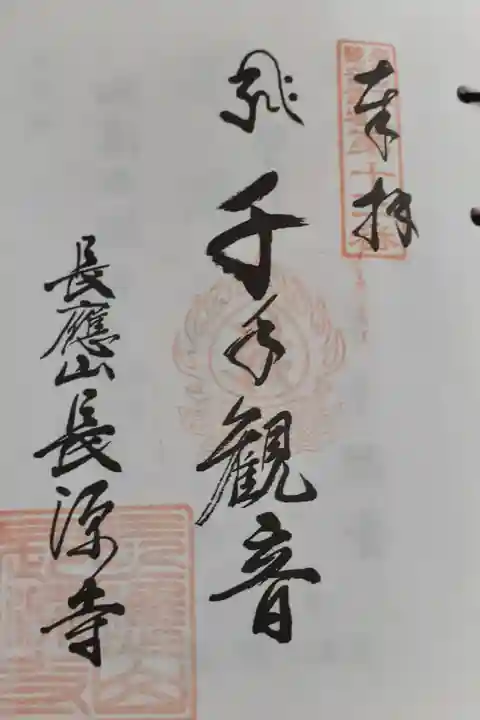 奉拝
千手観音
長應山長源寺